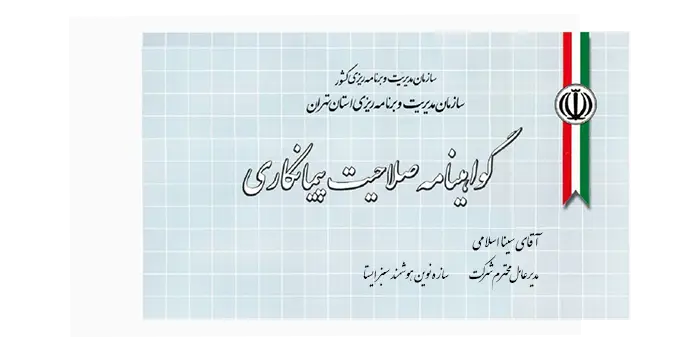 سازمان مدیریت و برنامه ریزی کشور
سازمان مدیریت و برنامه ریزی استان تهران
گواهینامه صلاحیت پیمانکاری
آقای سینا اسلامی
مدیرعامل محترم شرکت سازه نوین هوشمند سبز ایستا